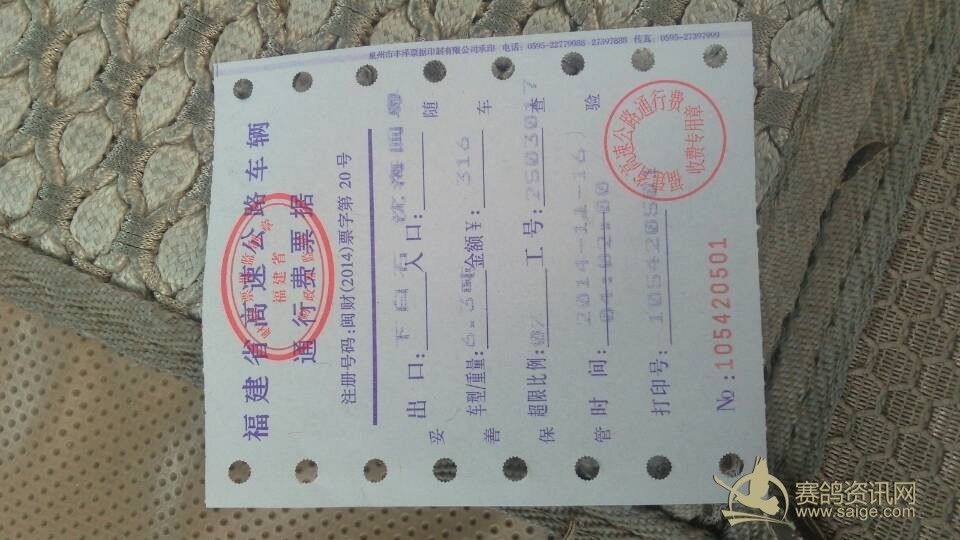 泉州市丰泽票据印制有限公司承印 电话：0595-22779088 27397888 传真：0595-27397999
福建省高速公路车辆
通行费票据
福建省
注册号码:闽财(2014)票字第 20 号
出 口: 下白石 入 口:
车型/重量: 金额￥: 316
超限比例: 02 工号: 2503017
时 间: 2014-11-16
打印号: 105420501
№:105420501
妥善保管
随车查验
高速公路通行费
收费专用章
福建省
赛鸽资讯网
www.saige.com